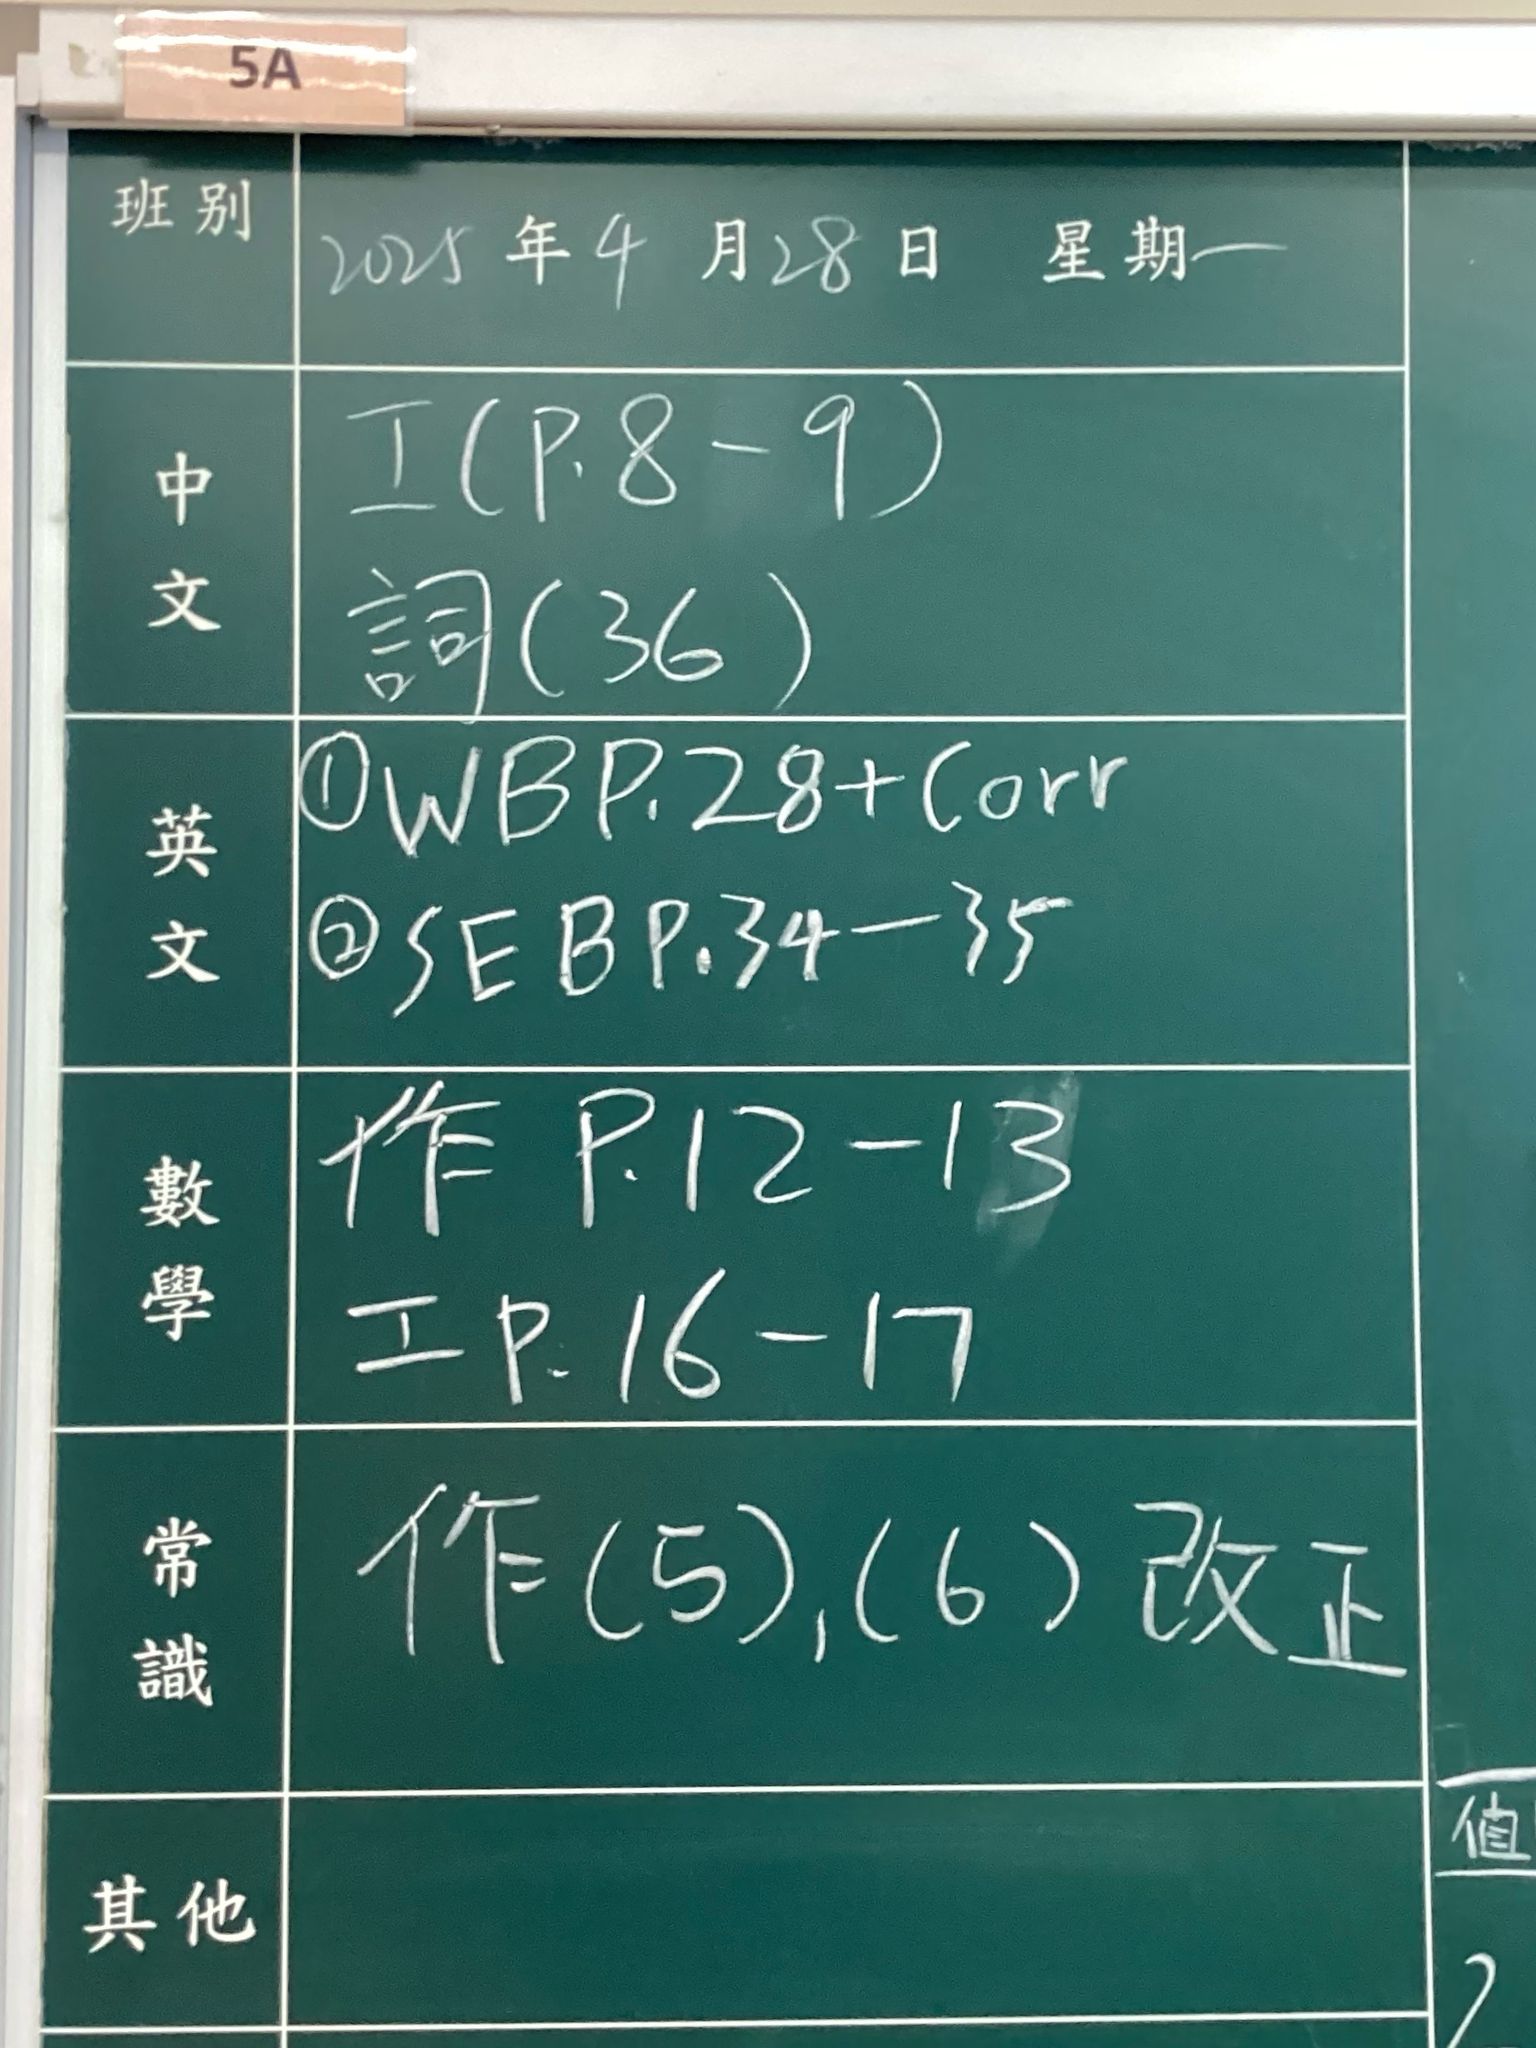 5A
班別
2025年4月28日 星期一
中文
工(P.8-9)
詞(36)
英文
①WB P.28+Corr
②SEB P.34-35
數學
作 P.12-13
工 P.16-17
常識
作(5),(6)改正
其他
值